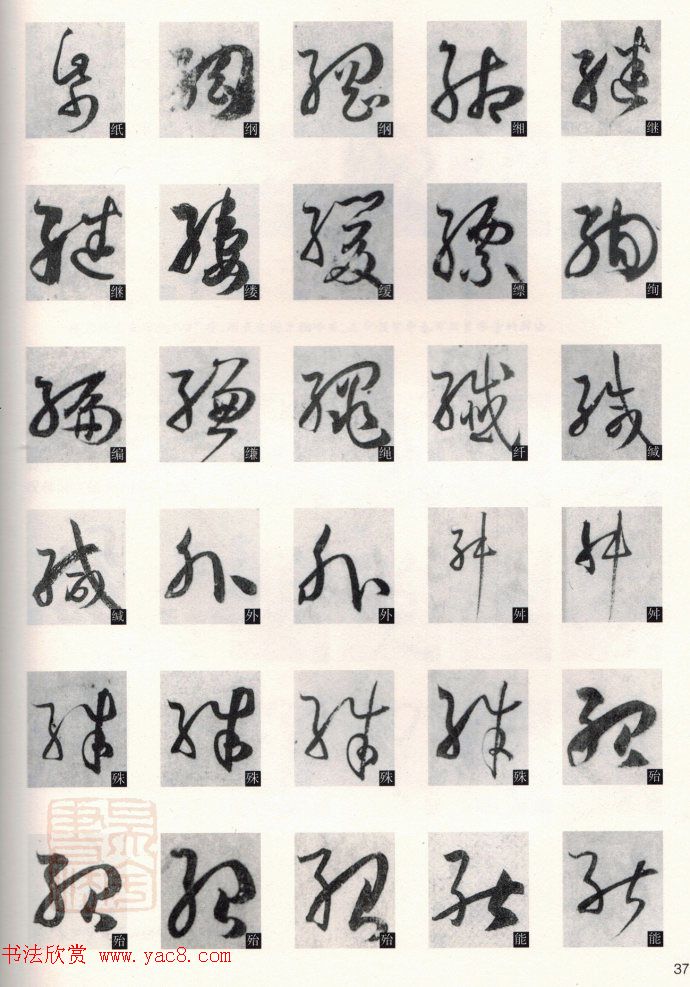 纸 纲 纲 缃 继
继 缕 缓 缥 绚
编 缣 绳 纤 缄
缄 外 外 舛 舛
殊 殊 殊 殊 殆
殆 殆 殆 能 能
书法欣赏 www.yac8.com
37